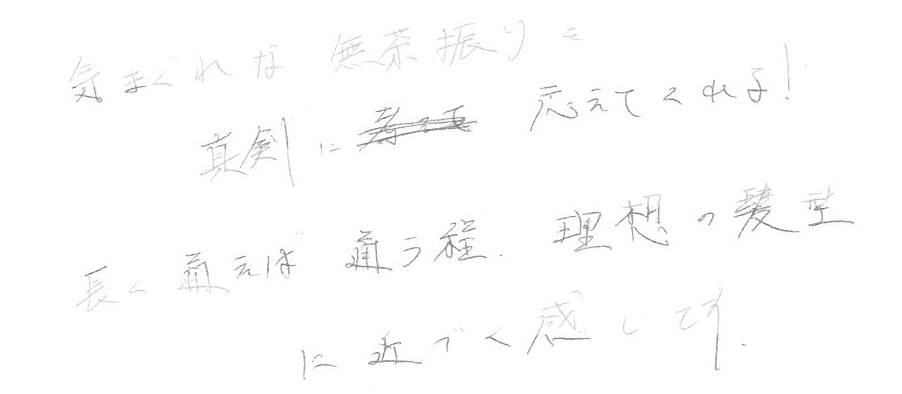 気まぐれな無茶振りに
真剣に応えてくれる!
長く通えば通う程、理想の髪型
に近づく感じです。